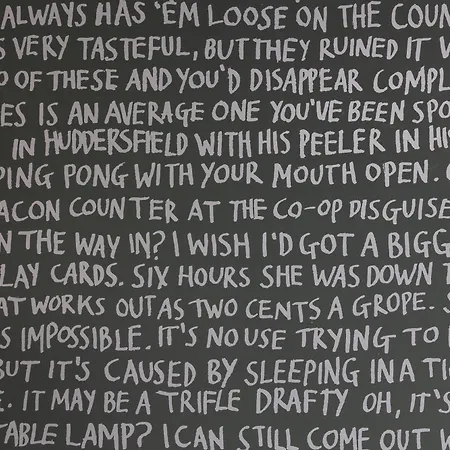 ALWAYS HAS 'EM LOOSE ON THE COUN
S VERY TASTEFUL, BUT THEY RUINED IT W
O OF THESE AND YOU'D DISAPPEAR COMPL
ES IS AN AVERAGE ONE YOU'VE BEEN SPO
IN HUDDERSFIELD WITH HIS PEELER IN HIS
PING PONG WITH YOUR MOUTH OPEN.
ACON COUNTER AT THE CO-OP DISGUISE
N THE WAY IN? I WISH I'D GOT A BIGG
LAY CARDS. SIX HOURS SHE WAS DOWN T
AT WORKS OUT AS TWO CENTS A GROPE. S
S IMPOSSIBLE. IT'S NO USE TRYING TO
BUT IT'S CAUSED BY SLEEPING IN A TI
E. IT MAY BE A TRIFLE DRAFTY OH, IT'S
TABLE LAMP? I CAN STILL COME OUT W